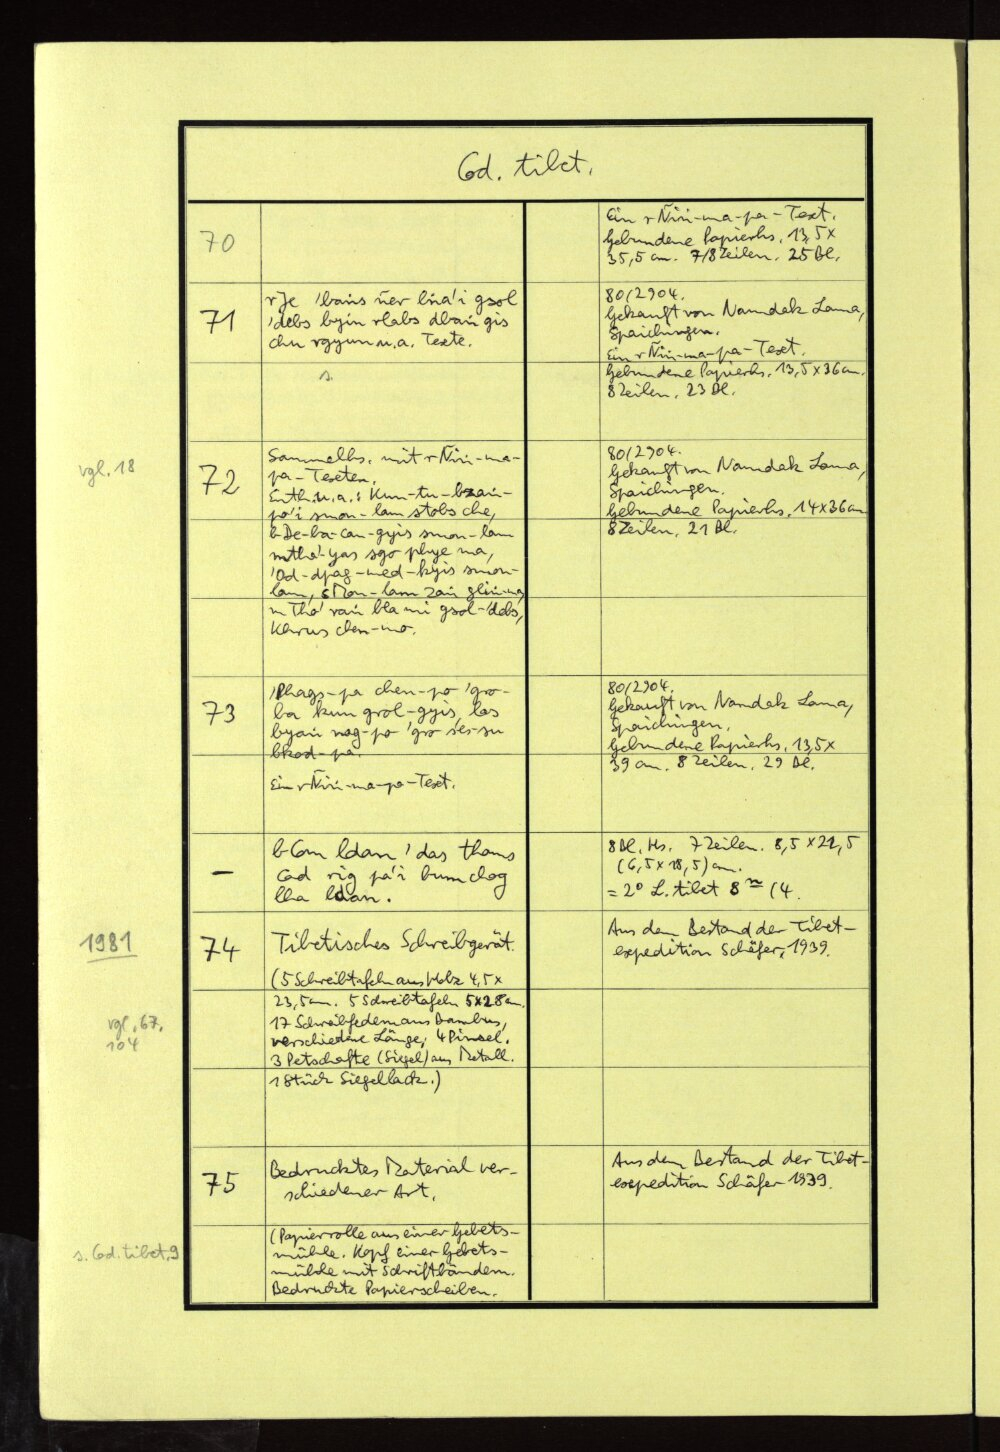 Cod. tibet.
70
Ein rÑiṅ-ma-pa-Text.
Gebundene Papierhs. 13,5 x
35,5 cm. 7/8 Zeilen. 25 Bl.
71
rJe 'baṅs ñer lṅa'i gsol
'debs byin rlabs dbaṅ gis
chu rgyun u. a. Texte.
s.
80/2904.
Gekauft von Namdak Lama,
Spaichingen.
Ein rÑiṅ-ma-pa-Text.
Gebundene Papierhs. 13,5 x 36 cm.
8 Zeilen. 23 Bl.
vgl. 18
72
Sammelhs. mit rÑiṅ-ma-
pa-Texten.
Enth. u. a.: Kun-tu-bzaṅ-
po'i smon-lam stobs che,
bDe-ba-can-gyis smon-lam
mtha'-yas sgo phye ma,
'Od-dpag-med-kyis smon-
lam, sMon-lam zaṅ gliṅ-ma,
mTho' raṅ bla mi gsol-'debs,
Khrus chen-mo.
80/2904.
Gekauft von Namdak Lama,
Spaichingen.
Gebundene Papierhs. 14 x 36 cm
8 Zeilen. 21 Bl.
73
'Phags-pa chen-po 'gro-
ba kun grol-gyis las
byaṅ nag-po 'gro śes-su
bkod-pa.
Ein rÑiṅ-ma-pa-Text.
80/2904.
Gekauft von Namdak Lama,
Spaichingen.
Gebundene Papierhs. 13,5 x
39 cm. 8 Zeilen. 29 Bl.
–
bCom ldan 'das thams
cad rig pa'i bum clog
lha ldan.
8 Bl. Hs. 7 Zeilen. 8,5 x 21,5
(6,5 x 18,5) cm.
= 2° L. tibet 8 m (4.
1981
74
Tibetisches Schreibgerät.
(5 Schreibtafeln aus Holz 4,5 x
23,5 cm. 5 Schreibtafeln 5 x 28 cm.
17 Schreibfedern aus Bambus,
verschiedene Länge, 4 Pinsel.
3 Petschafte (Siegel) aus Metall.
1 Stück Siegellack.)
Aus dem Bestand der Tibet-
expedition Schäfer, 1939.
vgl. 67,
104
75
Bedrucktes Material ver-
schiedener Art.
(Papierrolle aus einer Gebets-
mühle. Kopf einer Gebets-
mühle mit Schriftbändern.
Bedruckte Papierscheiben.
Aus dem Bestand der Tibet-
expedition Schäfer 1939.
s. Cod. tibet. 9